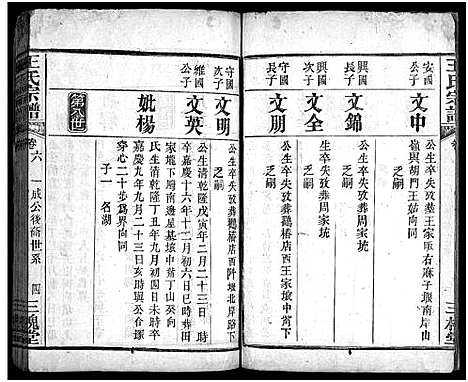 王氏宗譜
安國公子
文中
公生卒失攷葬王家畈右麻子堰南岸山
嶺與胡門王茹向同
興國長子
文錦
公生卒失攷葬周家坑
次子
文全
公生卒失攷葬周家坑
乏嗣
長子
文朋
公生卒失攷葬鸛橋店西王家壋中蒉下
乏嗣
守國次子
文明
公生卒失攷葬鸛橋店西阡堰北岸路下
乏嗣
維國公子
文英
公生清乾隆戊寅年二月二十三日時卒
嘉慶十六年十二月初六日巳時葬周
家壋下周南邊星基壋中蒉丁山癸向
第八世
妣楊
氏生清乾隆丁丑年九月初四日未時卒
嘉慶九年九月二十三日亥時與公合塚
穿心二十步爲界向同
子一 名湖
王氏宗譜
卷六
一成公後裔世系
四
三槐堂